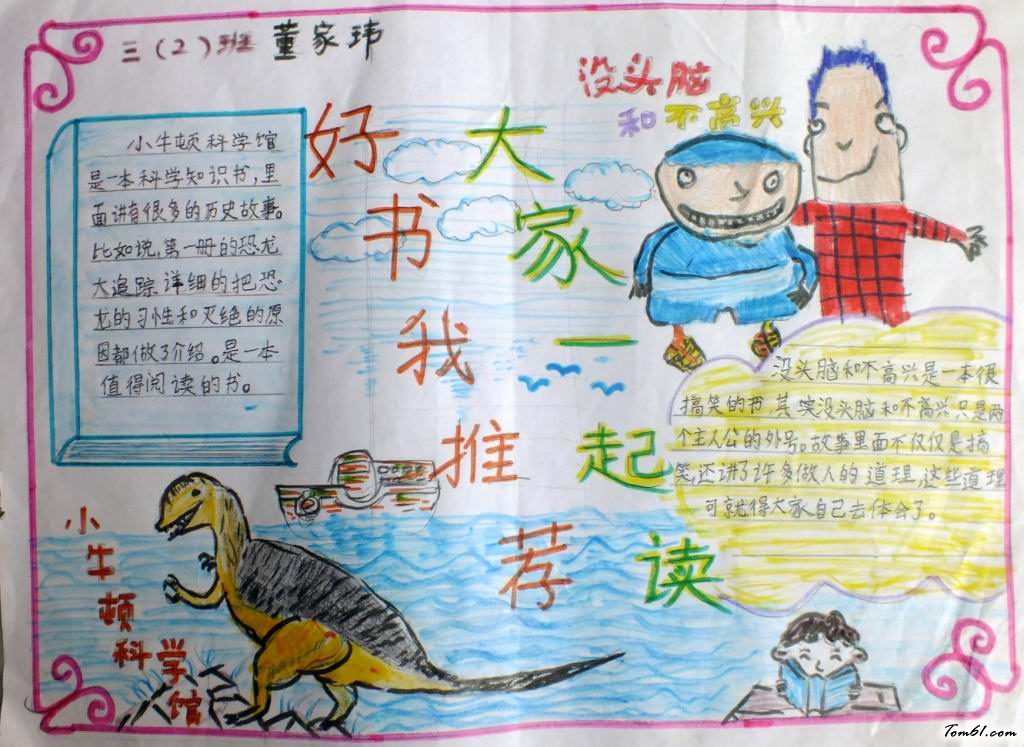 三(2)班 董家玮
没头脑
和不高兴
好书我推荐
大家一起读
小牛顿科学馆
是一本科学知识书,里
面讲有很多的历史故事。
比如说,第一册的恐龙
大追踪.详细的把恐
龙的习性和灭绝的原
因都做了介绍。是一本
值得阅读的书。
没头脑和不高兴是一本很
搞笑的书,其实没头脑和不高兴只是两
个主人公的外号。故事里面不仅仅是搞
笑,还讲了许多做人的道理,这些道理
可就得大家自己去体会了。
小牛顿科学馆
Tom61.com